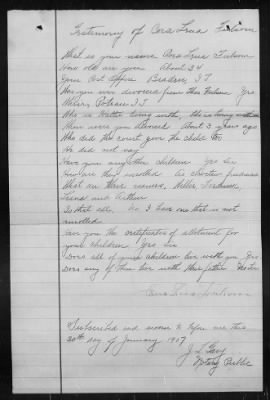 Testimony of Cora Lena Folsom
What is your name Cora Lena Folsom
How old are you About 34
Your Post Office I.T.
Have you ever divorced from Folsom Yes
I.T.
Who is Walter living with, He is living with me
When were you divorced About 3 years ago
Who did the court give the child to
He did not say
Have you any other children Yes Sir
How are they enrolled As Choctaw freedmen
What are their names,
and Arthur
Is that all. No I have one that is not
enrolled
Have you the certificates of allotment for
your children Yes Sir
Does all of your children live with you Yes
Does any of them live with their father
Subscribed and sworn to before me this
20th day of January 1907
Notary Public